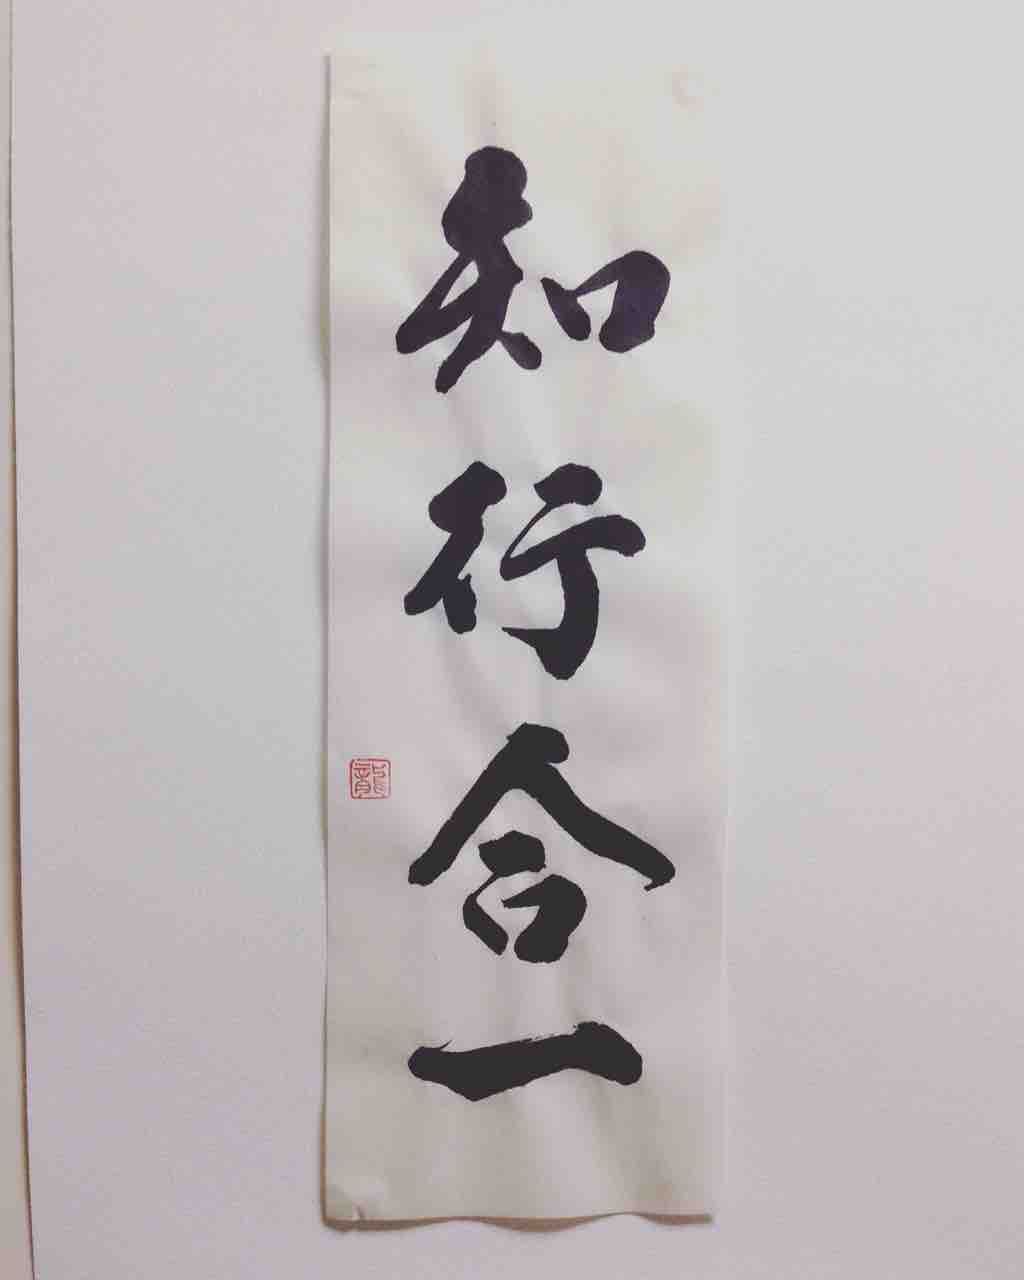 知行合一
龍